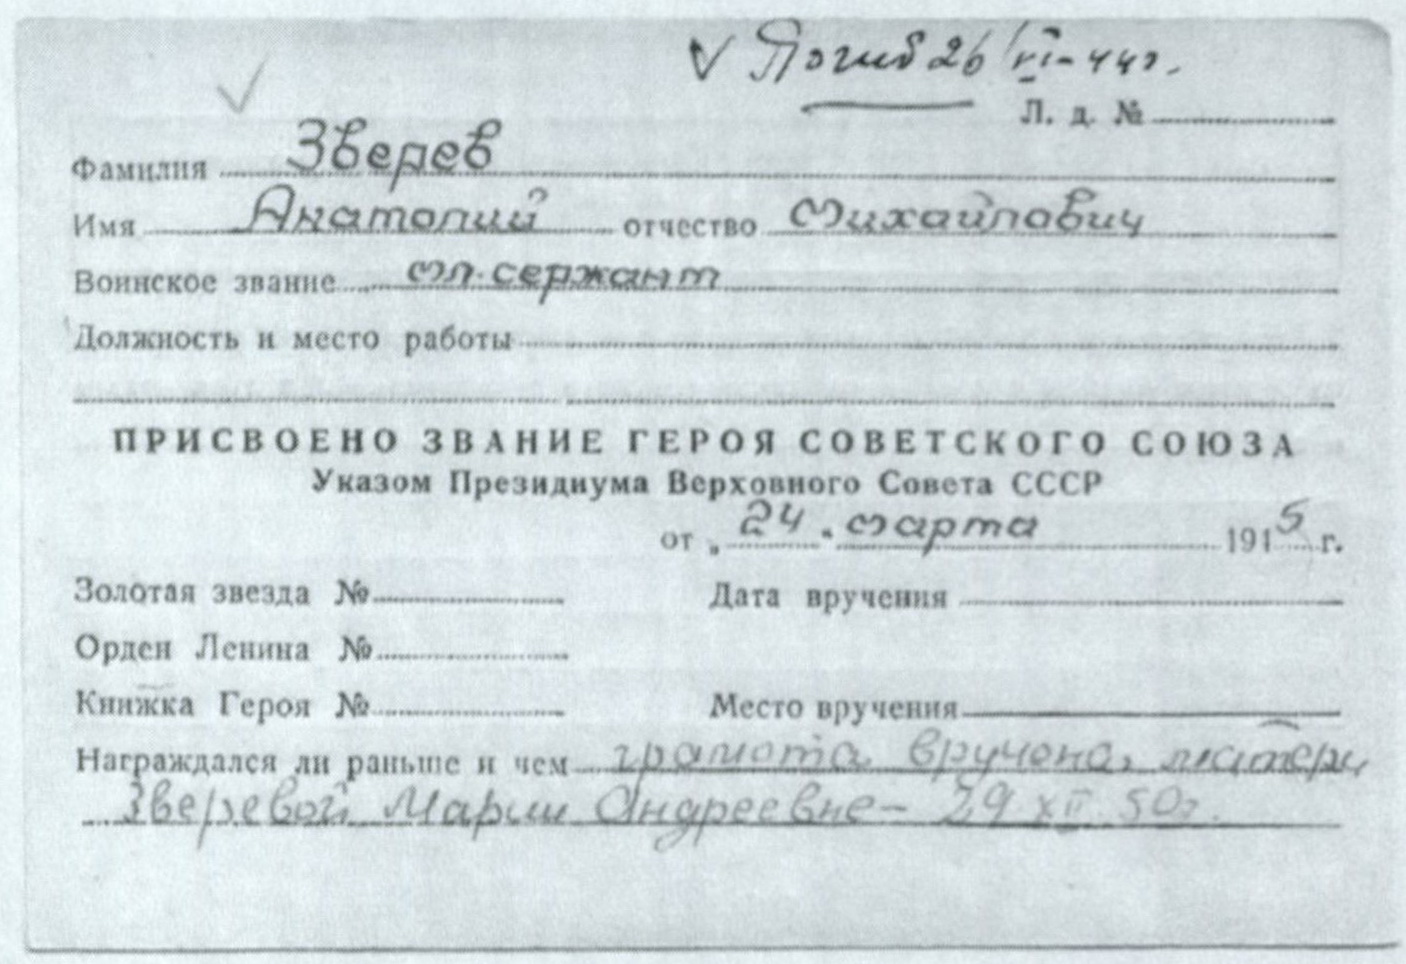 Погиб 26/VI-44г.
Л. д. №
Фамилия Зверев
Имя Анатолий отчество Михайлович
Воинское звание мл. сержант
Должность и место работы
ПРИСВОЕНО ЗВАНИЕ ГЕРОЯ СОВЕТСКОГО СОЮЗА
Указом Президиума Верховного Совета СССР
от „24" марта 1945 г.
Золотая звезда № Дата вручения
Орден Ленина №
Книжка Героя № Место вручения
Награждался ли раньше и чем грамота вручена матери
Зверевой Марии Андреевне - 29 XII 50г.